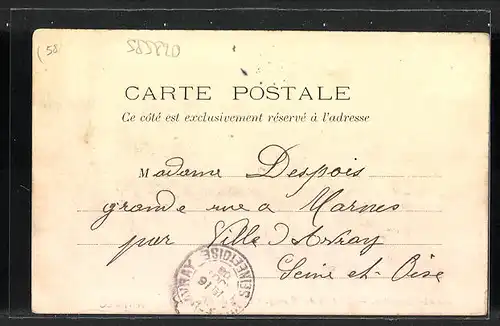 (58
585820
CARTE POSTALE
Ce côté est exclusivement réservé à l'adresse
Madame Despois
grande rue a Marnes
par Ville d'Avray
Seine et Oise